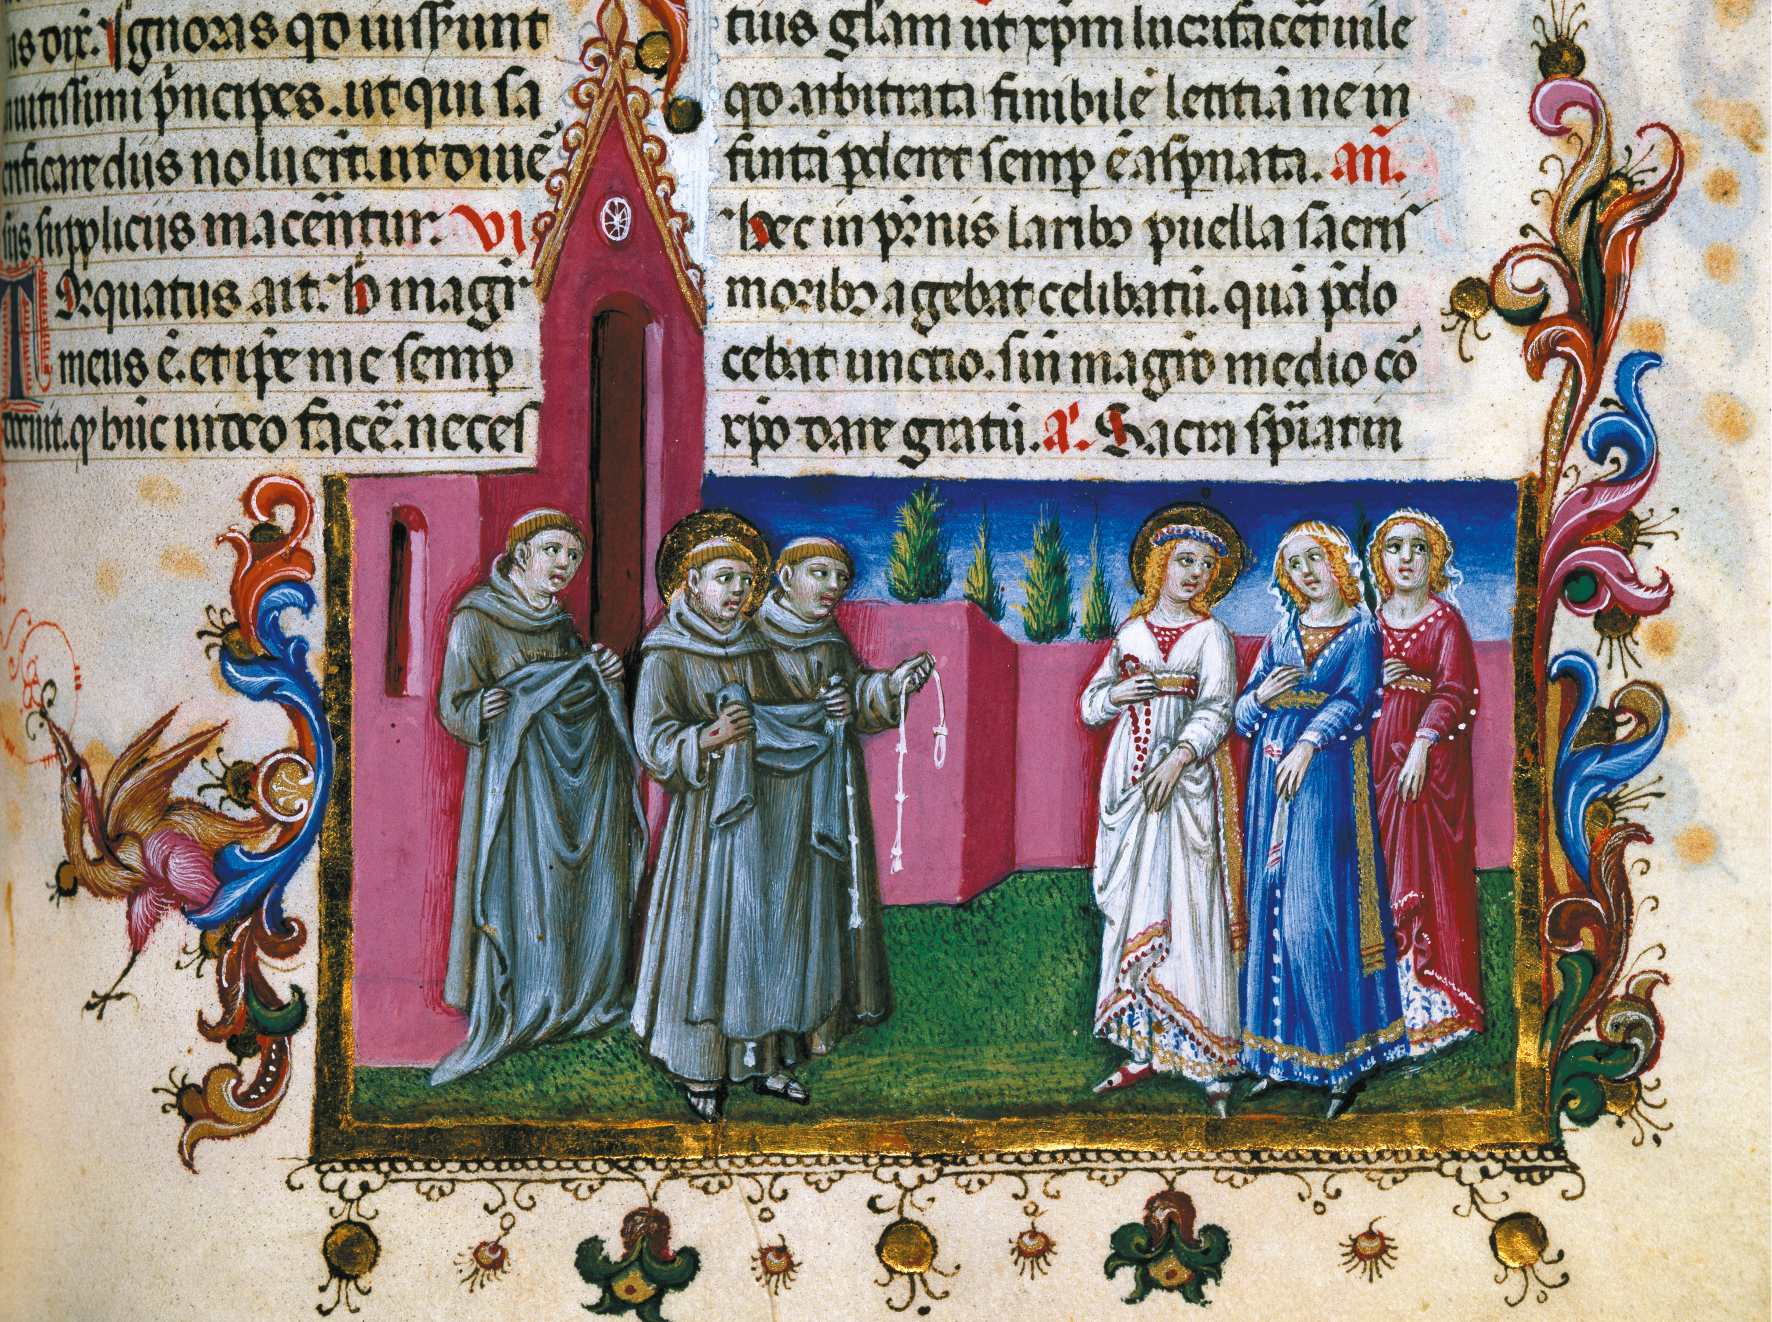 us dix̃. Ignoras qd̾ iusserunt
inuitissimi p̃ncipes. ut qui sa
crificare diis noluerĩt. ut diuẽ
sis suppliciis macerẽntur. VI
Torquatus ait. H̾ magr̃
meus ẽ. et ipe me semp
docuit. ꝙ huc uideo facẽ. neces
tius gl̃am ut xp̃m lucrifacẽt uile
qd̾ arbitrata finibilẽ letitiã ne in
finitã pderet semp ẽ asp̃nata. añ.
hec in pr̃nis laribꝫ puella sacris
moribꝫ agebat celibatũ. quã p̃do
cebat unctio. sin̄ magr̃o medio cõ
xp̃o dare gratũ. aᷓ. Sacra sp̃irat in